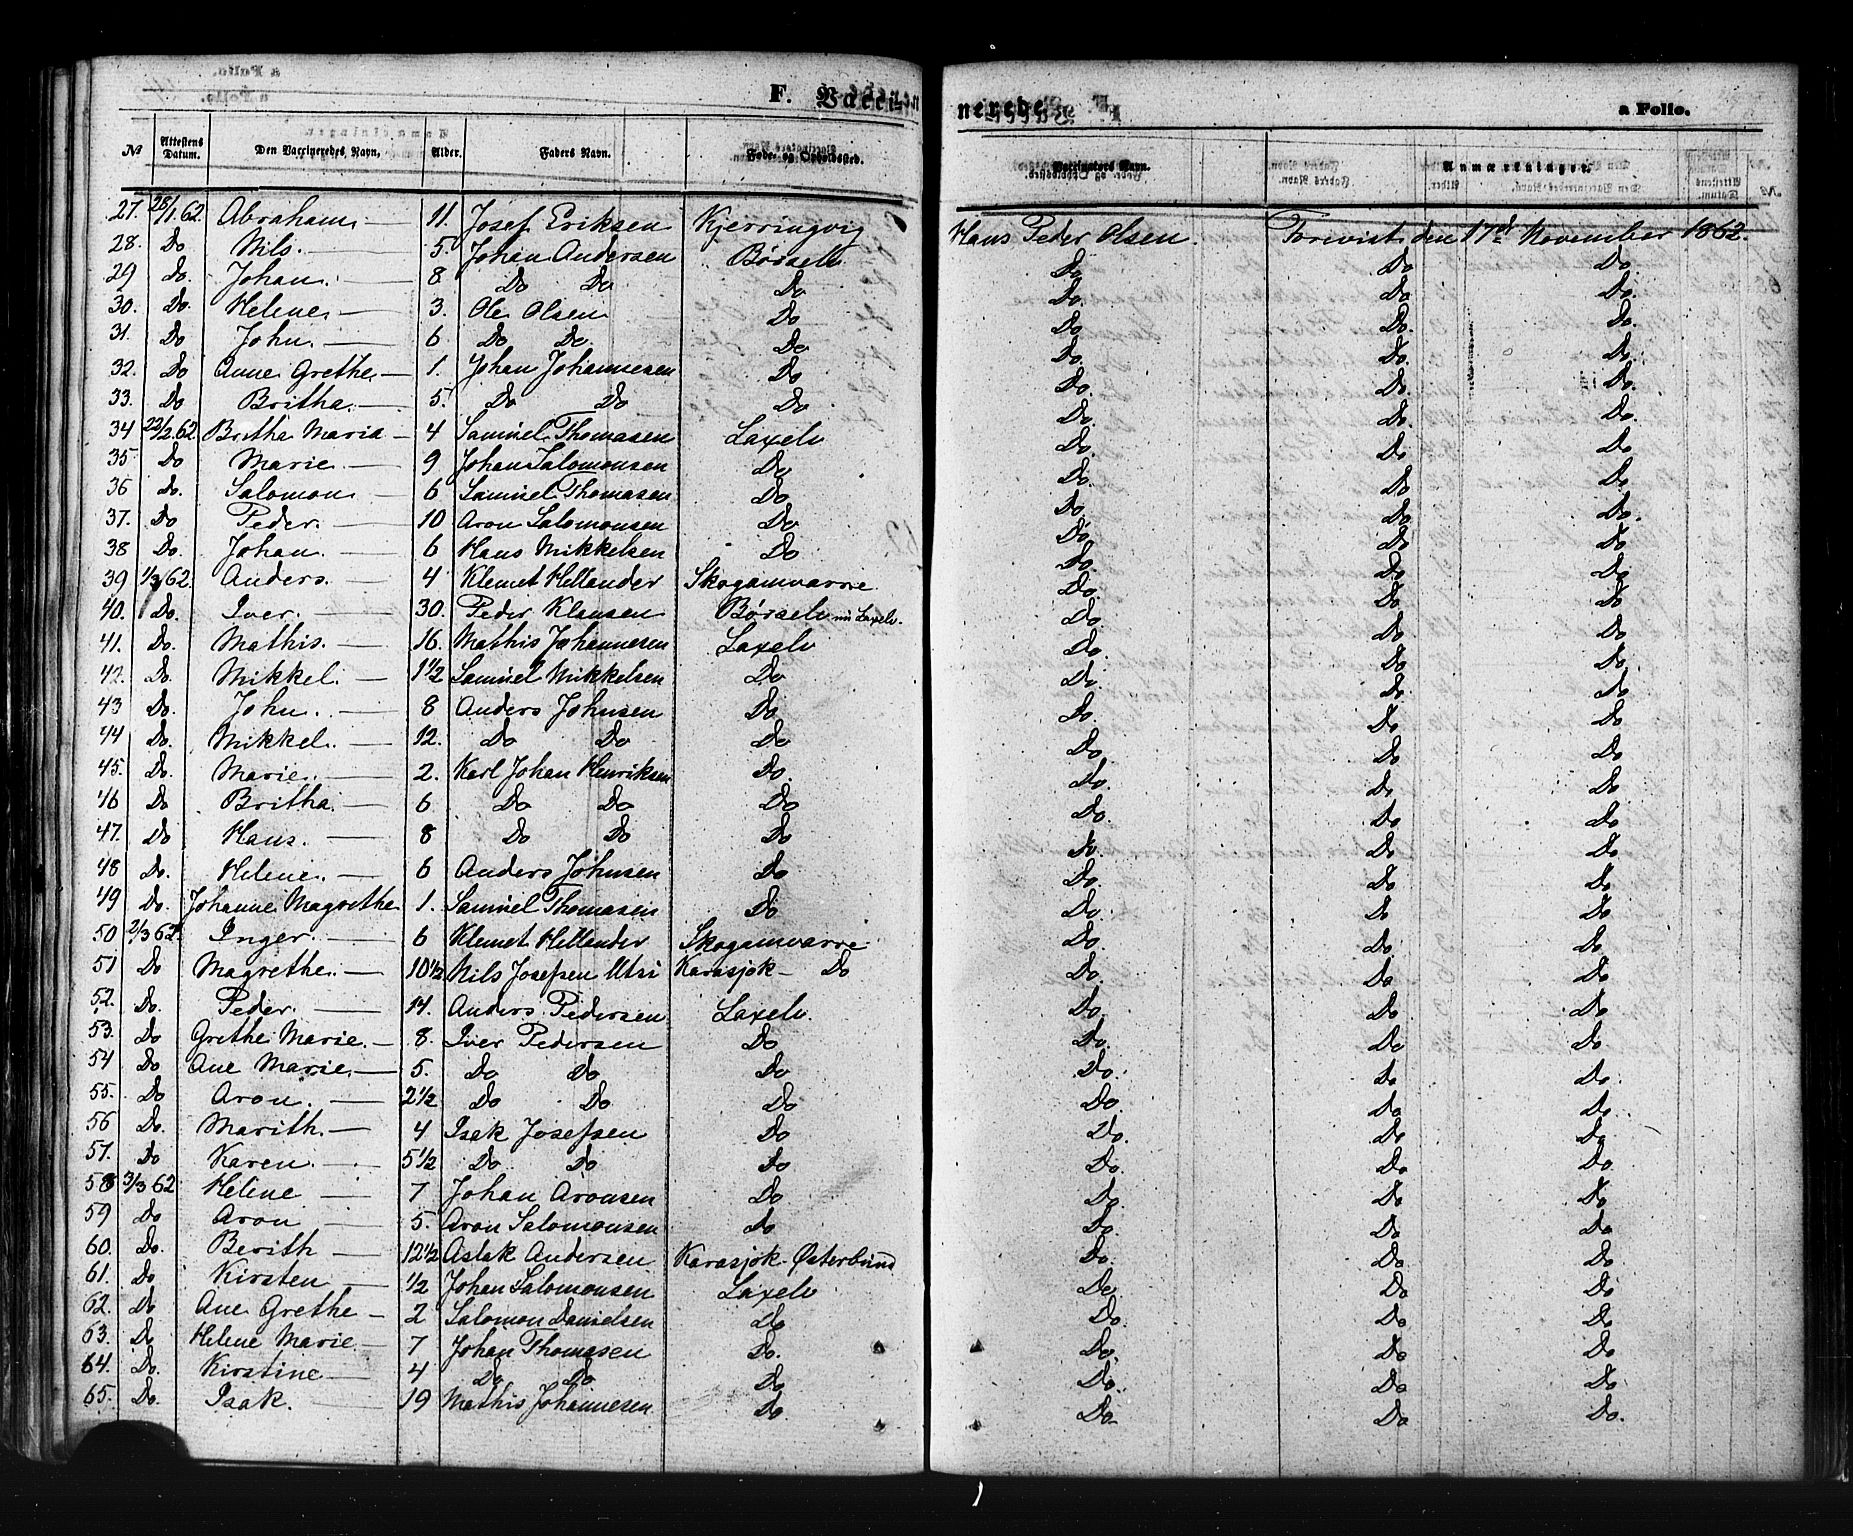 F. Vaccinerede. a Folio.
№ Attestens Datum. Den Vaccineredes Navn, Alder. Faders Navn. Føde- og Opholdssted. Vaccinators Navn. Anmærkninger.
27. 28/1 62. Abraham — 11. Josef Eriksen Kjerringvig Hans Peder Olsen. Forevist den 17de November 1862.
28. Do Nils. — 5. Johan Andersen Børselv Do Do Do.
29 Do. Johan. — 8 Do Do Do Do. Do Do.
30. Do. Helene. — 3. Ole Olsen Do Do Do. Do.
31. Do John. — 6 Do Do. Do Do. Do Do
32. Do Anne Grethe — 1. Johan Johannesen Do Do Do Do.
33. Do Britha. — 5. Do Do Do Do. Do. Do
34 22/2. 62. Britha Maria — 4 Samuel Thomasen Laxelv Do. Do Do
35 Do Marie. — 9 Johan Salomonsen Do Do. Do Do
36 Do. Salomon — 6 Samuel Thomasen Do Do. Do Do.
37. Do Peder. — 10 Aron Salomonsen Do Do. Do Do
38 Do. Johan. — 6 Hans Mikkelsen Do Do. Do Do
39 1/3 62. Anders. — 4 Klemet Hellander Skoganvarre Do. Do Do
40. Do. Iver. — 30. Peder Klausen Børselv nu Laxelv. Do. Do Do
41. Do. Mathis. — 16. Mathis Johannesen Laxelv Do. Do Do
42. Do. Mikkel. — 1 1/2 Samuel Mikkelsen Do Do. Do Do
43 Do. John. — 8 Anders Johnsen Do Do. Do Do
44 Do. Mikkel. — 12. Do Do Do Do. Do Do
45. Do. Marie. — 2. Karl Johan Henriksen Do. Do. Do Do
46 Do Britha. — 6. Do Do Do Do. Do Do.
47. Do Hans. — 8 Do Do Do Do. Do Do
48 Do. Helene. — 6 Anders Johnsen Do Do. Do Do
49 Do. Johanne Magrethe 1. Samuel Thomasen Do Do. Do Do
50 2/3 62. Inger. — 6 Klemet Hellander Skoganvarre Do. Do Do.
51 Do Magrethe. — 10 1/2 Nils Josefsen Utsi Karasjok — Do Do. Do Do
52. Do. Peder. — 14. Anders Pedersen Laxelv. Do. Do Do
53. Do Grethe Marie. — 8. Iver Pedersen Do Do. Do Do
54 Do. Ane Marie. — 5. Do Do Do Do. Do Do.
55. Do Aron. — 2 1/2 Do Do Do Do. Do Do.
56 Do. Marith. — 4 Isak Josefsen Do Do. Do Do
57. Do Karen. — 5 1/2 Do Do Do Do. Do Do
58 3/3 62 Helene — 7 Johan Aronsen Do Do. Do Do
59 Do Aron — 5. Aron Salomonsen Do Do. Do Do
60. Do. Berith — 12 1/2 Aslak Andersen Karasjok-Østerbund Do. Do Do
61. Do Kirsten — 1/2 Johan Salomonsen Laxelv Do. Do Do
62. Do Ane Grethe — 2 Salomon Danielsen Do Do. Do Do
63. Do Helene Marie — 7 Johan Thomasen Do. Do. Do Do
64. Do. Kirstine — 4 Do Do Do Do. Do Do
65. Do. Isak. — 19 Mathis Johannesen Do. Do. Do Do.